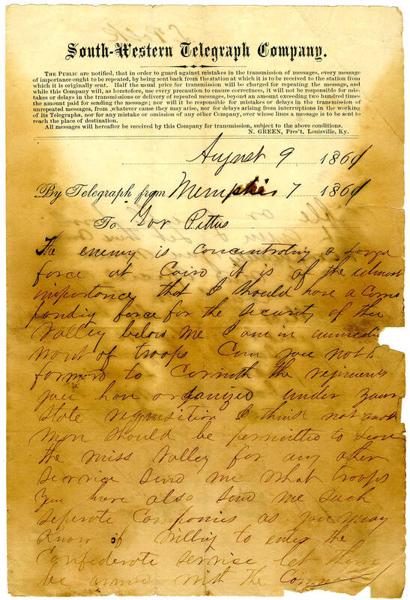 South-Western Telegraph Company.
THE PUBLIC are notified, that in order to guard against mistakes in the transmission of messages, every message
of importance ought to be repeated, by being sent back from the station at which it is to be received to the station from
which it is originally sent. Half the usual price for transmission will be charged for repeating the message, and
while this Company will, as heretofore, use every precaution to ensure correctness, it will not be responsible for mis-
takes or delays in the transmission or delivery of repeated messages, beyond an amount exceeding two hundred times
the amount paid for sending the message; nor will it be responsible for mistakes or delays in the transmission of
unrepeated messages, from whatever cause they may arise, nor for delays arising from interruptions in the working
of its Telegraphs, nor for any mistake or omission of any other Company, over whose lines a message is to be sent to
reach the place of destination.
All messages will hereafter be received by this Company for transmission, subject to the above conditions.
N. GREEN, Pres't, Louisville, Ky.
August 9 1861
By Telegraph from Memphis 7 1861
To Gov Pettus
The enemy is concentrating a large
force at Cairo it is of the utmost
importance that I should have a Corres
ponding force for the security of the
Valley below me I am in immediate
want of troops Can you not
forward to Corinth the regiments
you have organized under your
state requisition I think not
men should be permitted to leave
the Miss Valley for any other
service Send me what troops
you have also send me such
seperate Companies as you may
know if willing to enter the
Confederate service let them
be armed with the